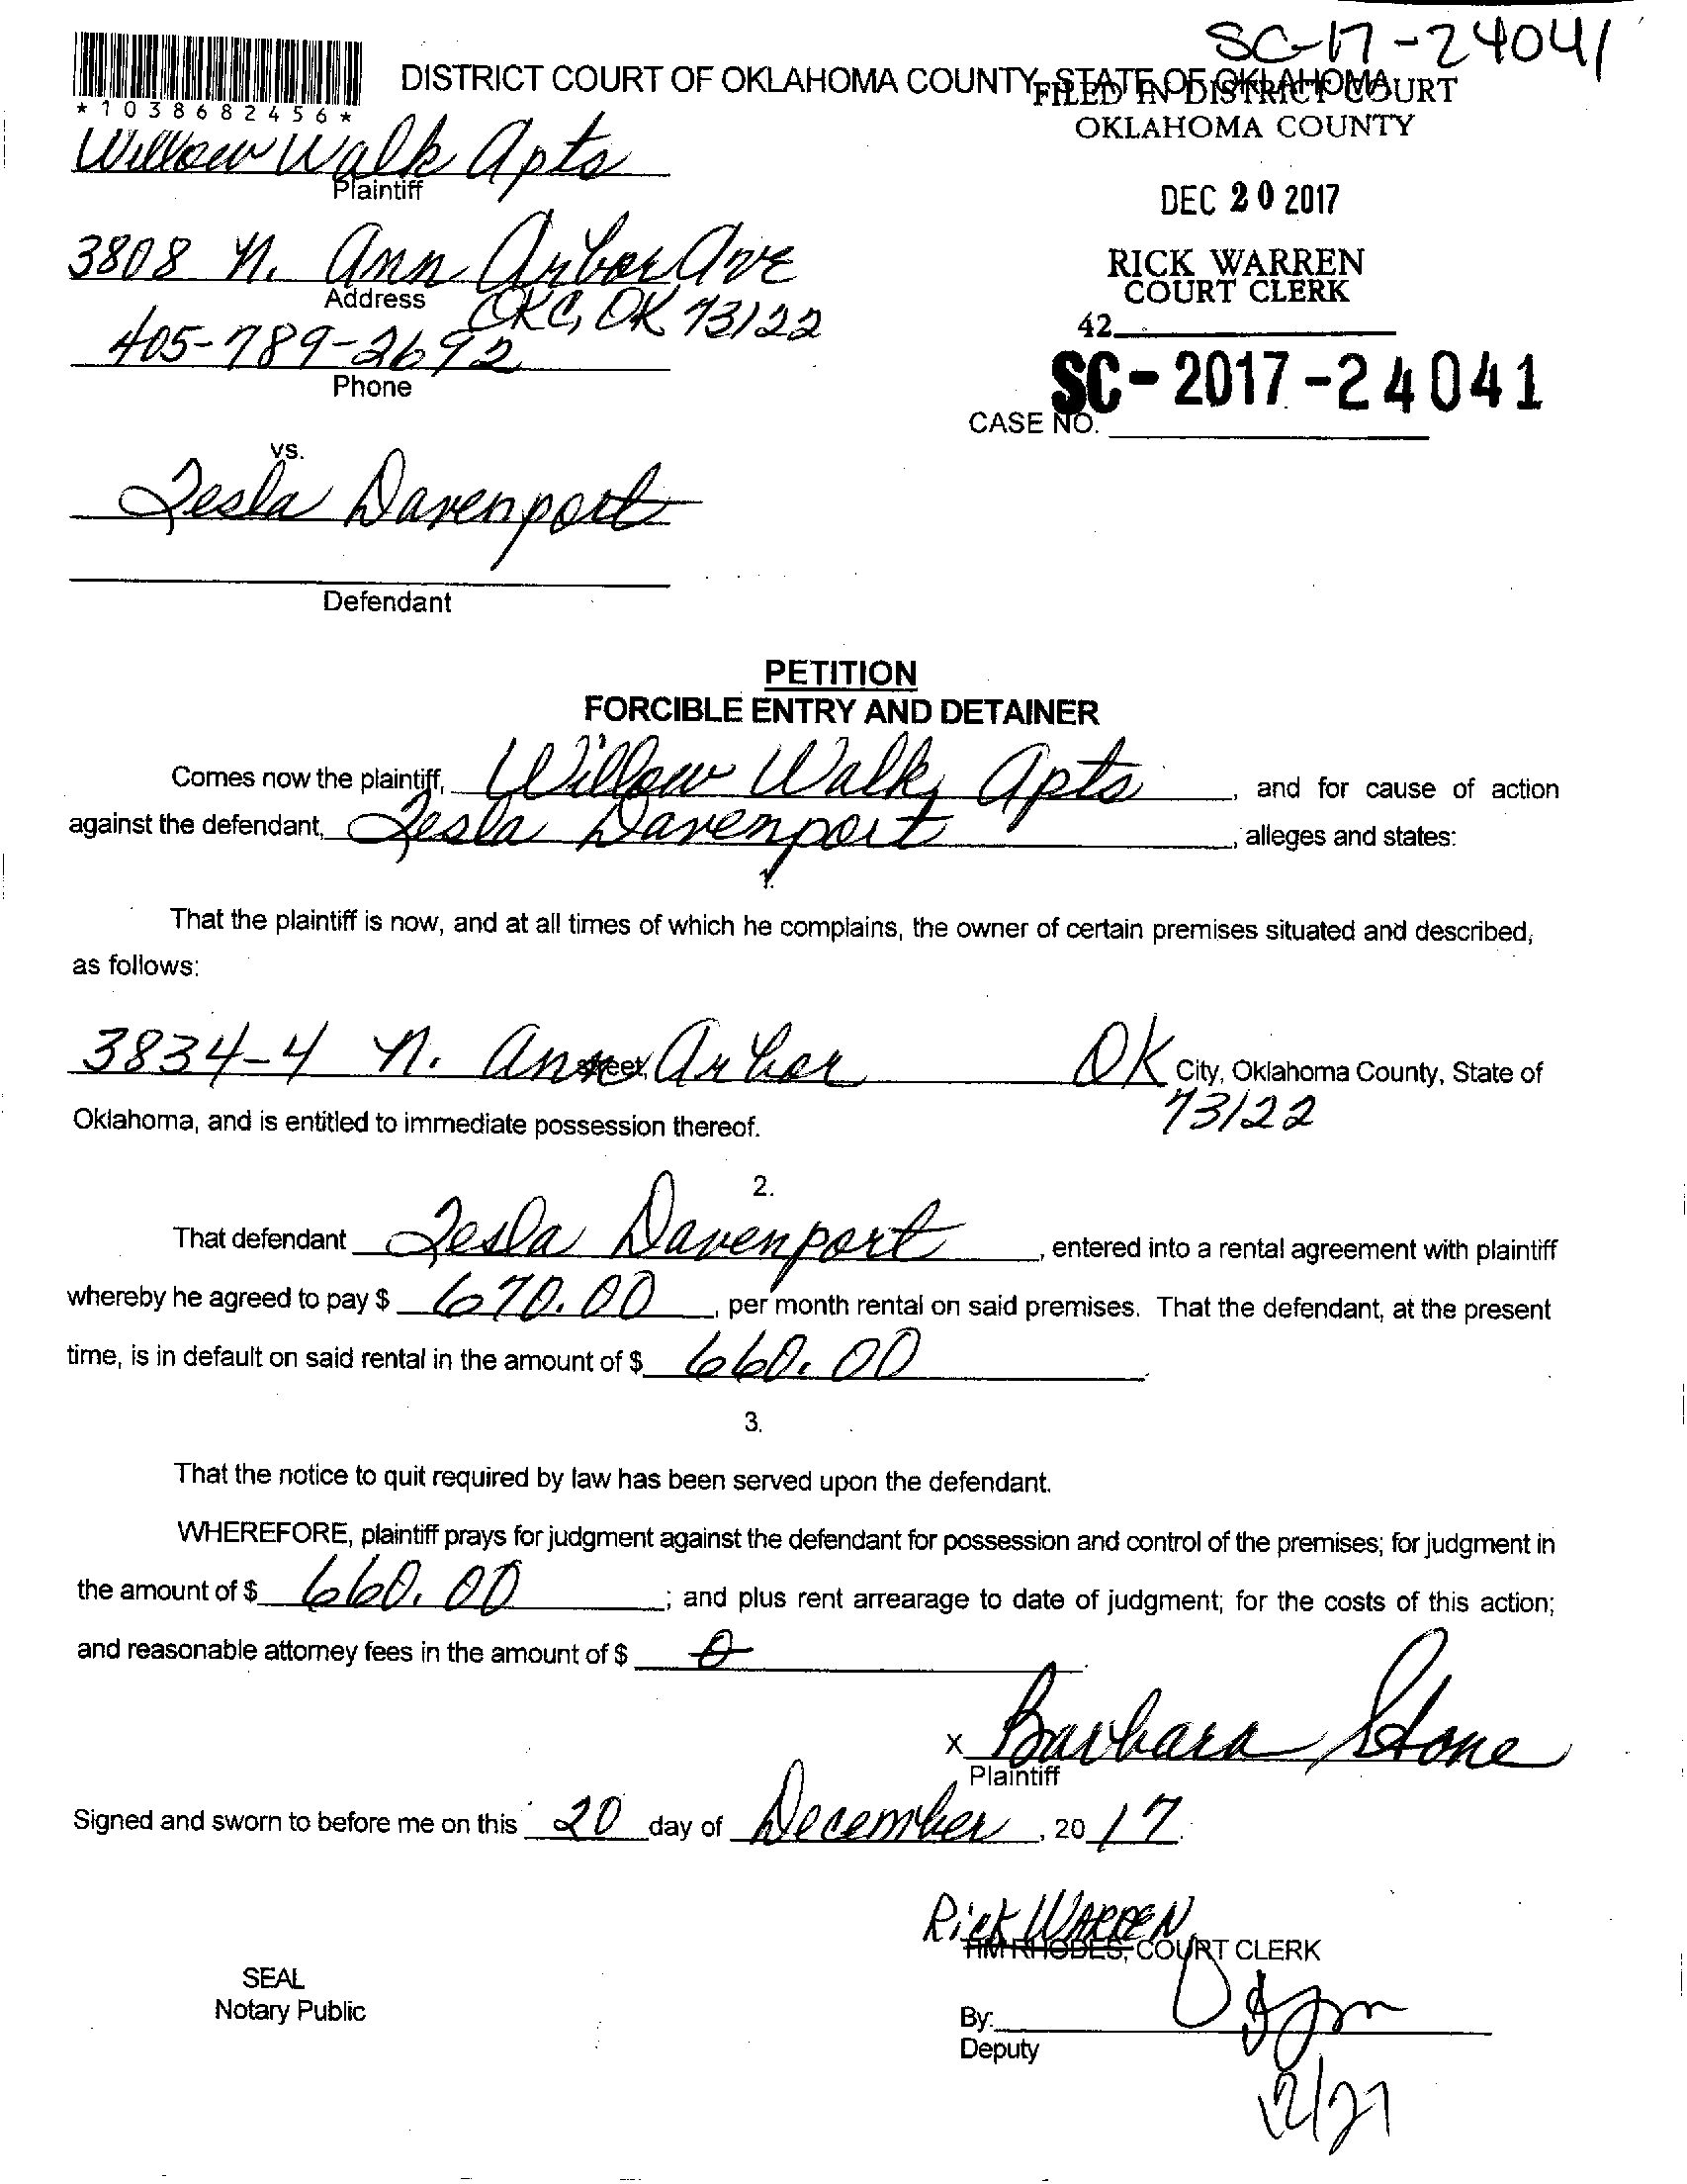 SC-17-24041
DISTRICT COURT OF OKLAHOMA COUNTY, STATE OF OKLAHOMA
FILED IN DISTRICT COURT
OKLAHOMA COUNTY
*1038682456*
Willow Walk Apts
Plaintiff
DEC 20 2017
3808 N. Ann Arbor Ave
Address
OKC, OK 73122
RICK WARREN
COURT CLERK
405-789-2692
Phone
42
SC-2017-24041
CASE NO.
vs.
Tesla Davenport
Defendant
PETITION
FORCIBLE ENTRY AND DETAINER
Comes now the plaintiff, Willow Walk Apts, and for cause of action
against the defendant, Tesla Davenport, alleges and states:
1.
That the plaintiff is now, and at all times of which he complains, the owner of certain premises situated and described,
as follows:
3834-4 N. Ann Arbor street, OK City, Oklahoma County, State of
73122
Oklahoma, and is entitled to immediate possession thereof.
2.
That defendant Tesla Davenport, entered into a rental agreement with plaintiff
whereby he agreed to pay $ 670.00, per month rental on said premises. That the defendant, at the present
time, is in default on said rental in the amount of $ 660.00.
3.
That the notice to quit required by law has been served upon the defendant.
WHEREFORE, plaintiff prays for judgment against the defendant for possession and control of the premises; for judgment in
the amount of $ 660.00; and plus rent arrearage to date of judgment; for the costs of this action;
and reasonable attorney fees in the amount of $ 0.
X Barbara Stone
Plaintiff
Signed and sworn to before me on this 20 day of December, 2017.
Rick WARREN
TIM RHODES, COURT CLERK
SEAL
Notary Public
By:
Deputy
12/27